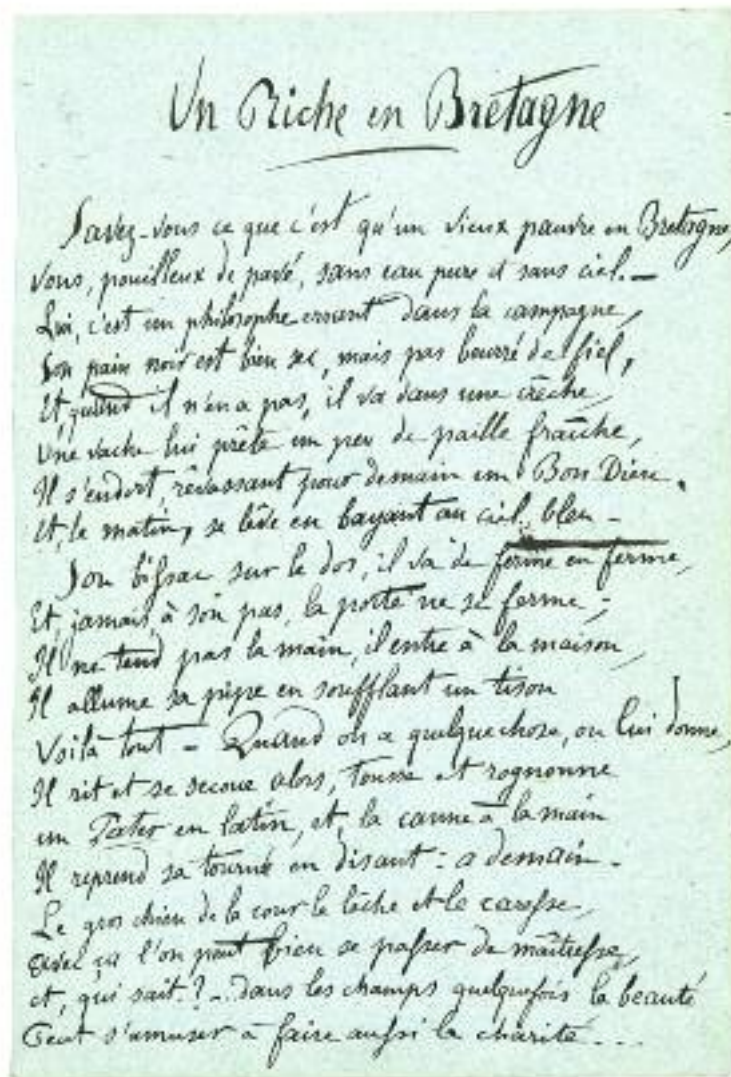 Un Riche en Bretagne
Savez-vous ce que c'est qu'un vieux pauvre en Bretagne,
Vous, pouilleux de pavé, sans eau pure et sans ciel. —
Lui, c'est un philosophe errant dans la campagne,
Son pain noir est bien sec, mais pas beurré de fiel,
Et, quand il n'en a pas, il va dans une crèche,
Une vache lui prête un peu de paille fraîche,
Il s'endort, rêvassant pour demain un Bon Dieu.
Et, le matin, se lève en bayant au ciel bleu —
Son bissac sur le dos, il va de ferme en ferme,
Et, jamais, à son pas, la porte ne se ferme ;
Il ne tend pas la main, il entre à la maison,
Il allume sa pipe en soufflant un tison
Voilà tout — Quand on a quelque chose, on lui donne,
Il rit et se secoue alors, tousse et rognonne
un Pater en latin, et, la canne à la main
Il reprend sa tournée en disant : a demain —
Le gros chien de la cour le lèche et le caresse,
avec ça l'on peut bien se passer de maîtresse,
et, qui sait ? ... dans les champs quelquefois la beauté
Peut s'amuser à faire aussi la charité ...